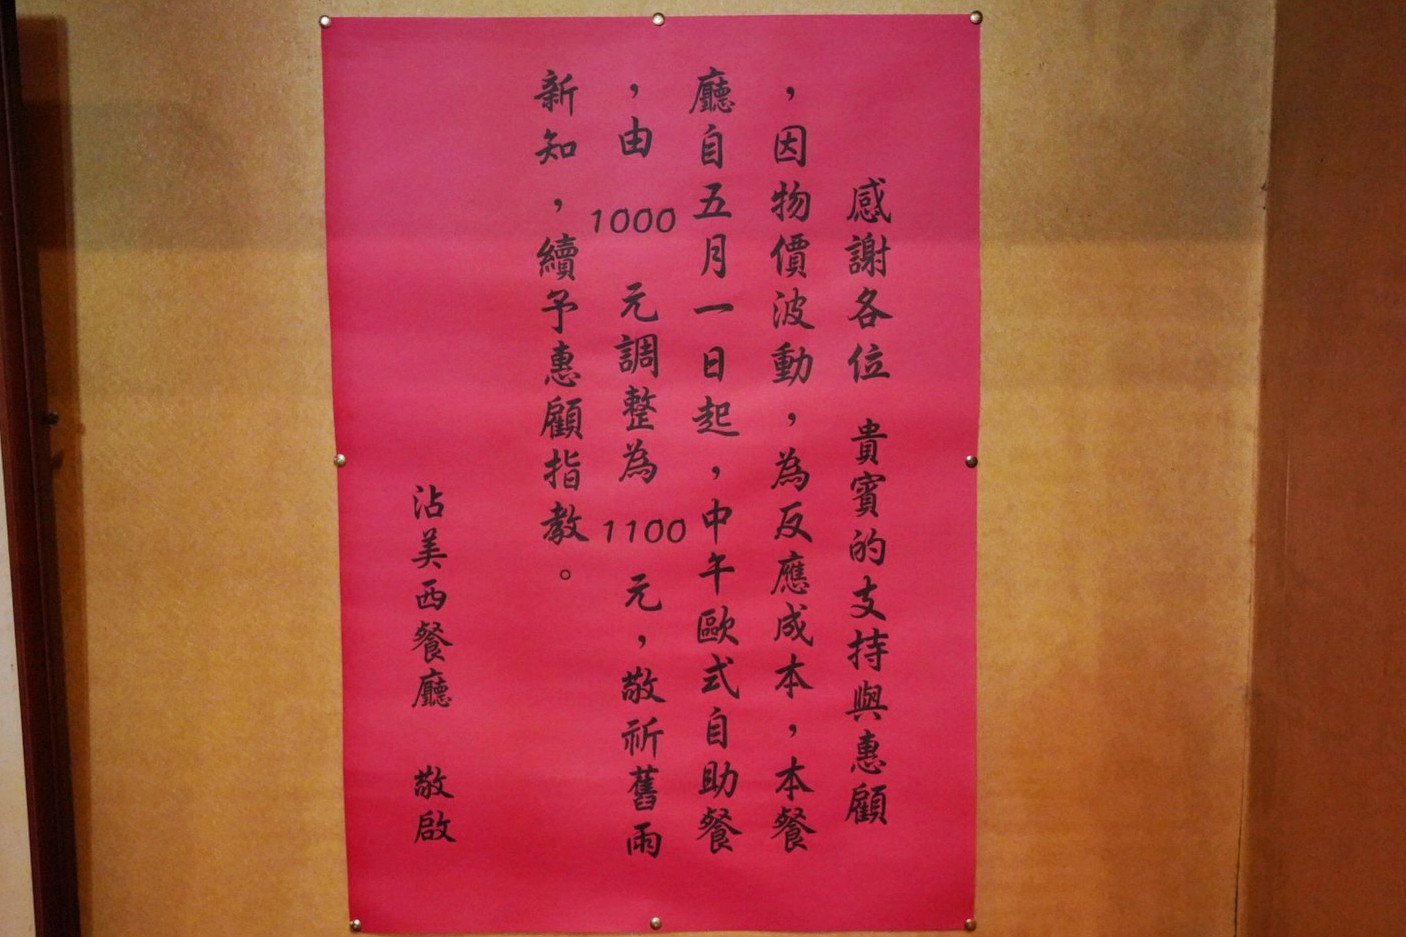 感謝各位 貴賓的支持與惠顧
，因物價波動，為反應成本，本餐
廳自五月一日起，中午歐式自助餐
，由 1000 元調整為 1100 元，敬祈舊雨
新知，續予惠顧指教。
沾美西餐廳 敬啟